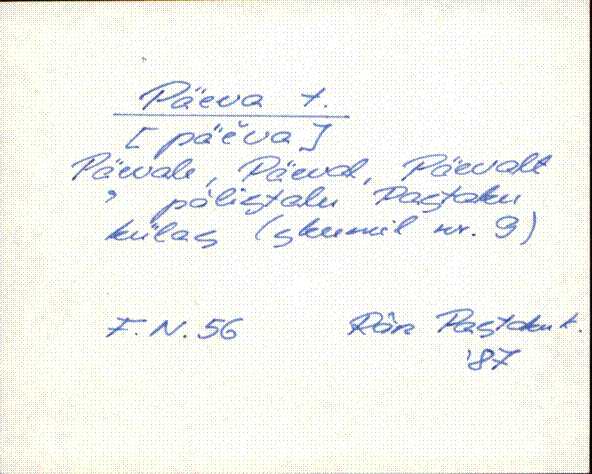 Päeva t.
[päěva]
Päevale, Päeval, Päevalt
, põlistalu Pastaku
külas (skeemil nr. 9)
F.N. 56 Rõn Pastaku k.
'87